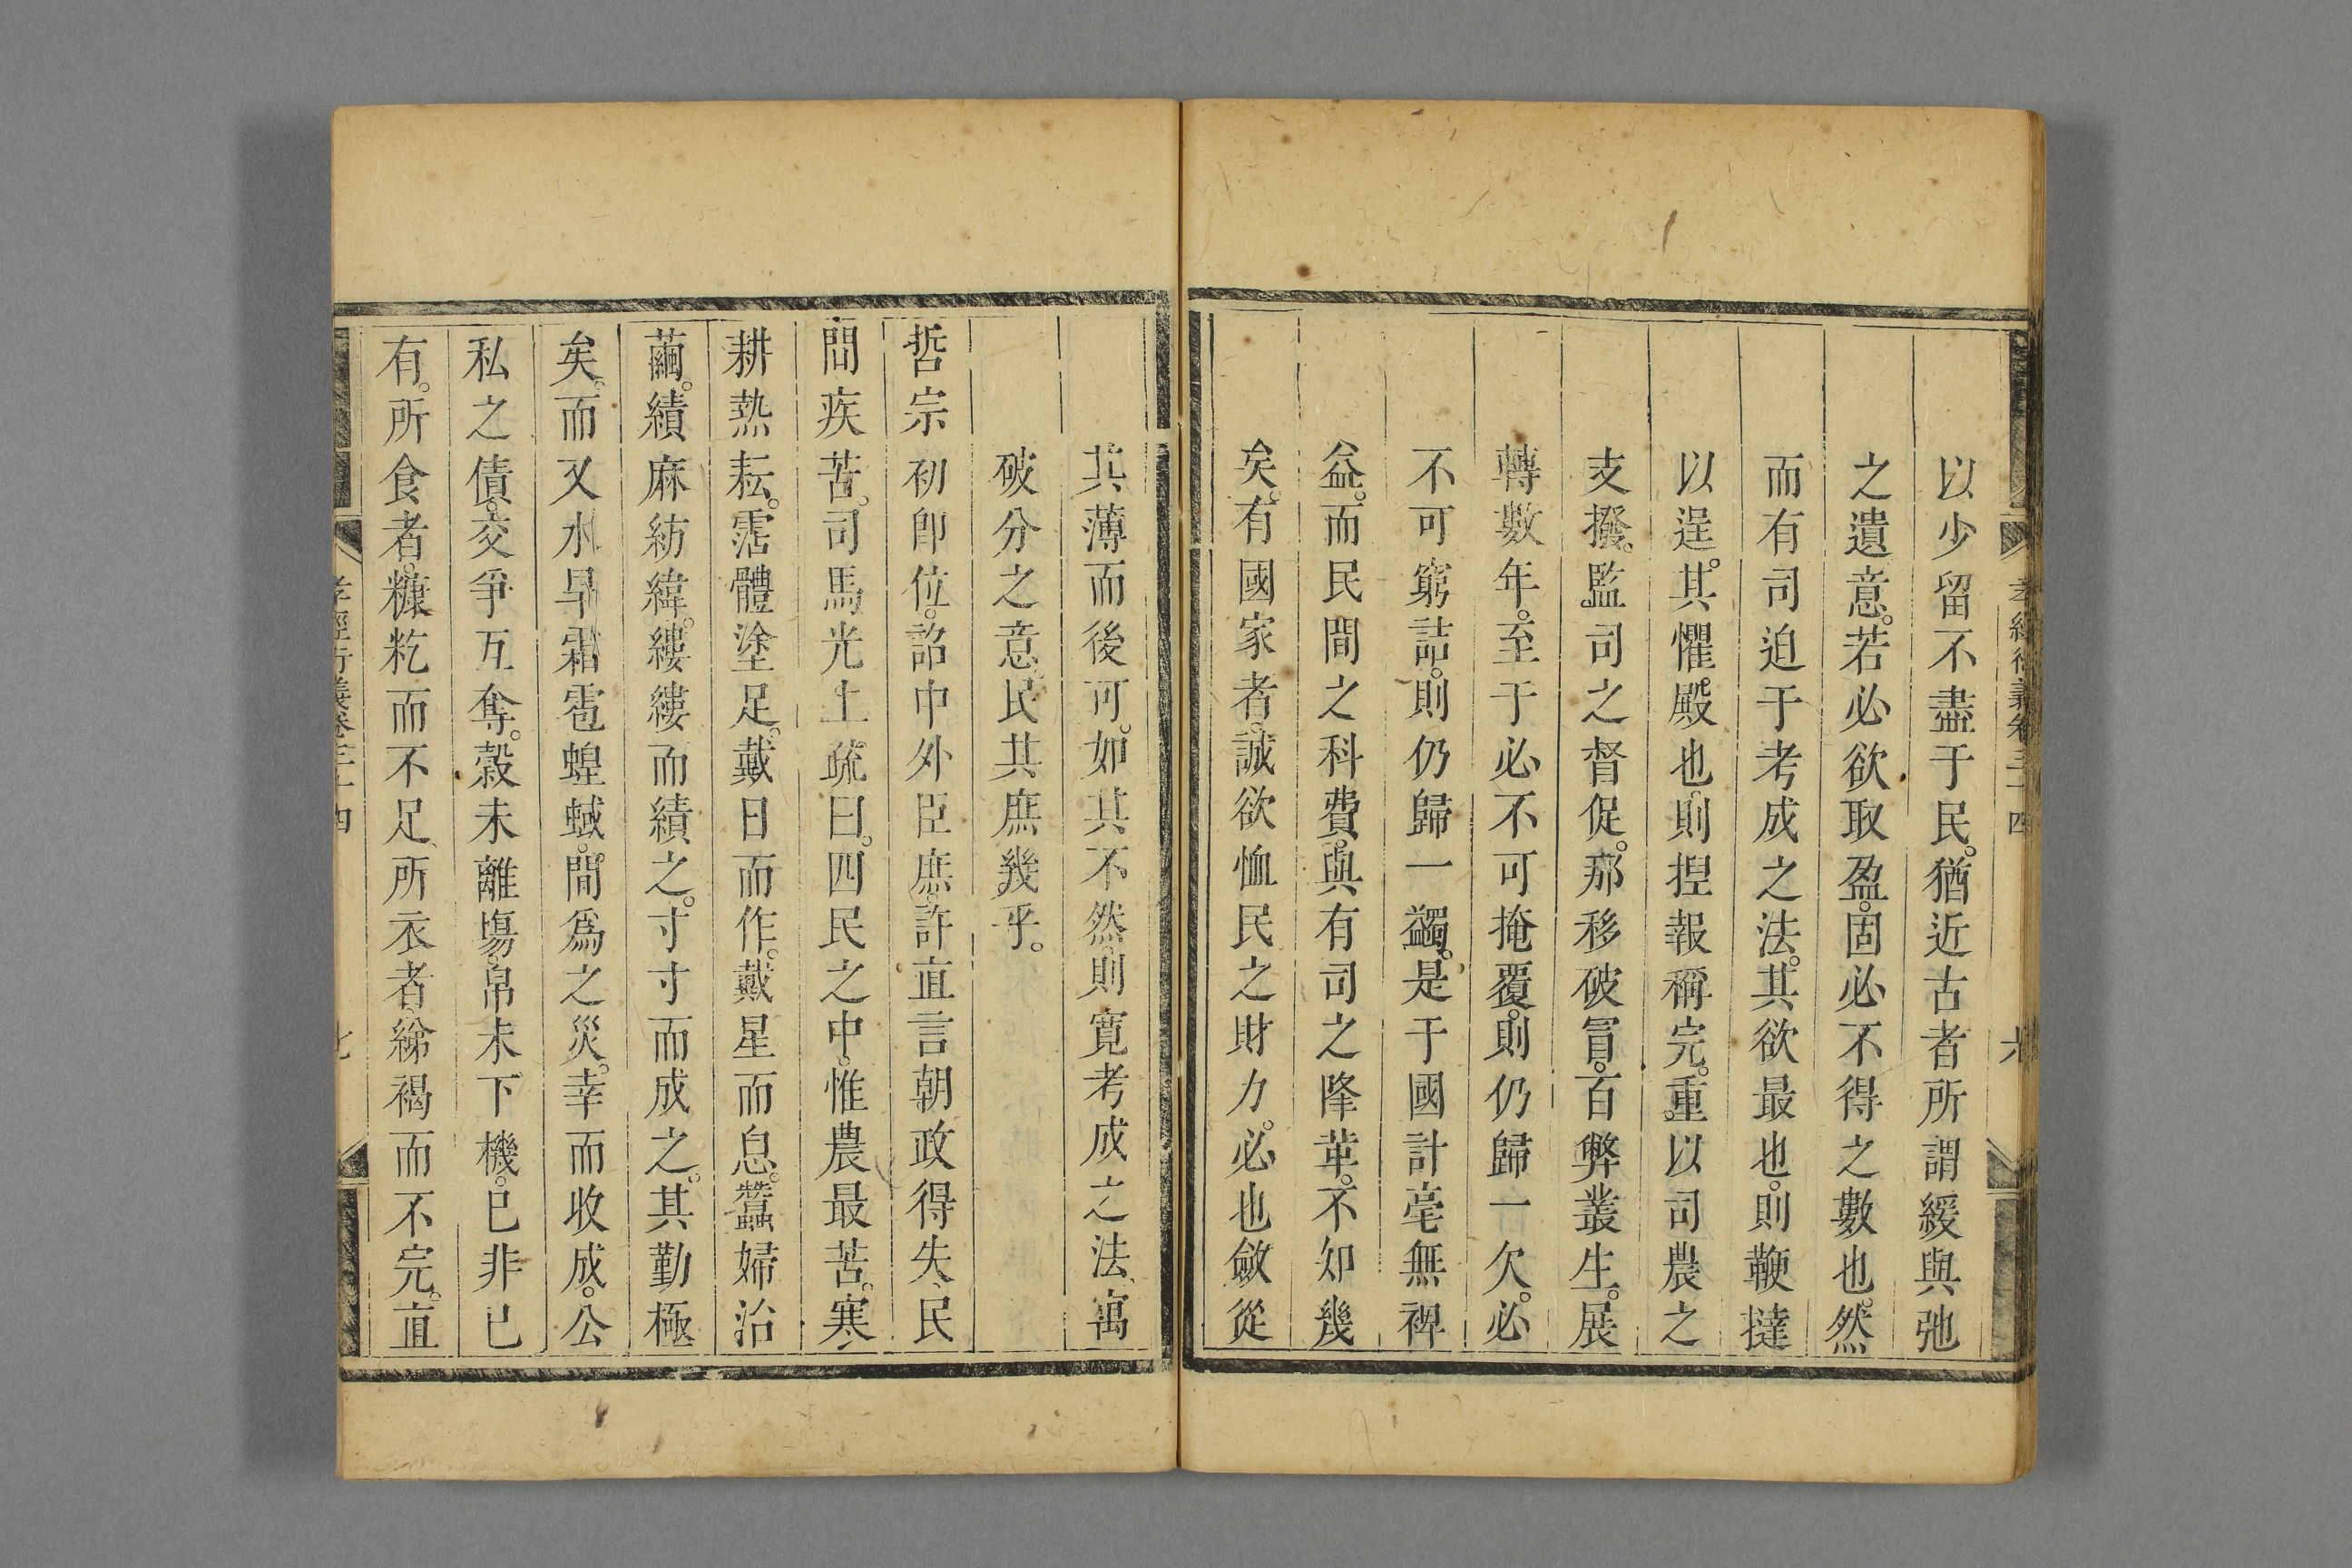 孝經衍義卷三十四 六
以少留不盡于民。猶近古者所謂緩與弛
之遺意。若必欲取盈。固必不得之數也。然
而有司迫于考成之法。其欲最也。則鞭撻
以逞。其懼殿也。則捏報稱完。重以司農之
支撥。監司之督促。那移破冒。百弊叢生。展
轉數年。至于必不可掩覆。則仍歸一欠。必
不可窮詰。則仍歸一蠲。是于國計毫無裨
益。而民間之科費。與有司之降革。不知幾
矣。有國家者。誠欲恤民之財力。必也斂從
其薄而後可。如其不然。則寬考成之法、寓
破分之意。民其庶幾乎。
哲宗初卽位。詔中外臣庶。許直言朝政得失、民
間疾苦。司馬光上疏曰。四民之中。惟農最苦。寒
耕熱耘。霑體塗足。戴日而作。戴星而息。蠶婦治
繭。績麻紡緯。縷縷而績之。寸寸而成之。其勤極
矣。而又水旱霜雹蝗蜮。間爲之災。幸而收成。公
私之債。交爭互奪。穀未離場。帛未下機。已非已
有。所食者。糠籺而不足、所衣者。綈褐而不完。直
孝經衍義卷三十四 七